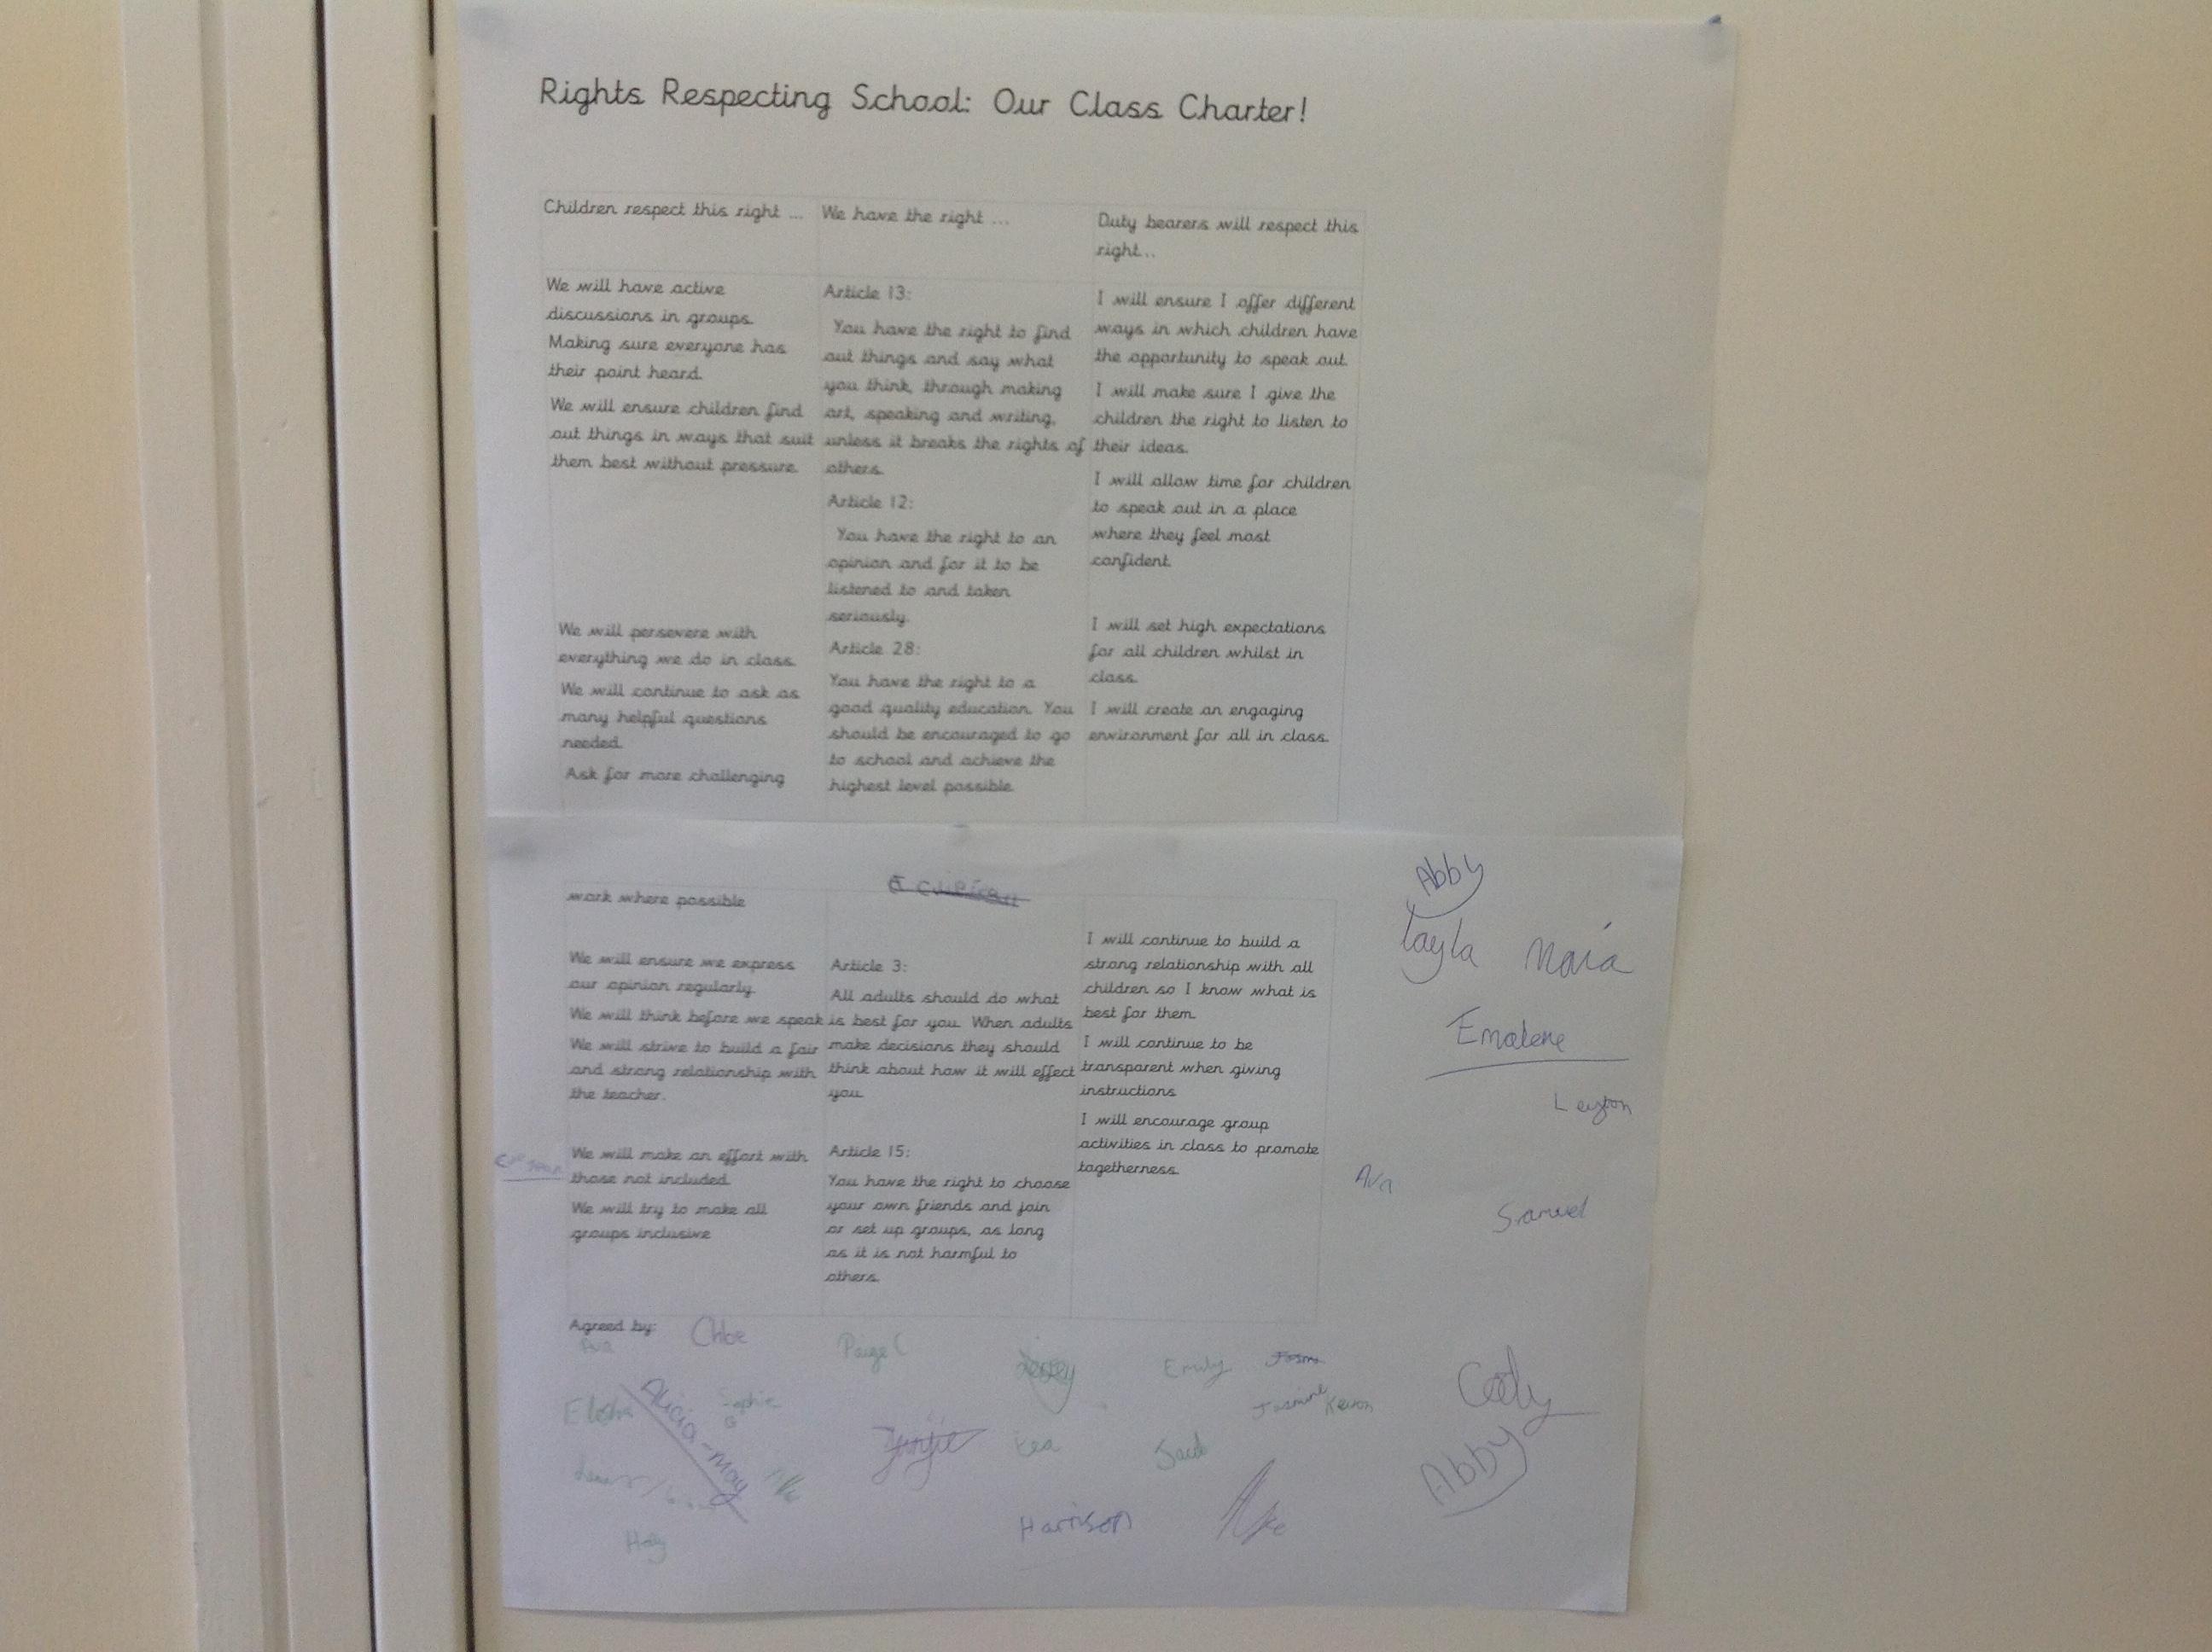 Rights Respecting School: Our Class Charter!
Children respect this right ...
We have the right ...
Duty bearers will respect this
right...
We will have active
discussions in groups.
Making sure everyone has
their point heard.
We will ensure children find
out things in ways that suit
them best without pressure.
Article 13:
You have the right to find
out things and say what
you think, through making
art, speaking and writing,
unless it breaks the rights of
others.
Article 12:
You have the right to an
opinion and for it to be
listened to and taken
seriously.
I will ensure I offer different
ways in which children have
the opportunity to speak out.
I will make sure I give the
children the right to listen to
their ideas.
I will allow time for children
to speak out in a place
where they feel most
confident.
We will persevere with
everything we do in class.
We will continue to ask as
many helpful questions
needed.
Ask for more challenging
Article 28:
You have the right to a
good quality education. You
should be encouraged to go
to school and achieve the
highest level possible.
I will set high expectations
for all children whilst in
class.
I will create an engaging
environment for all in class.
work where possible
We will ensure we express
our opinion regularly.
We will think before we speak
We will strive to build a fair
and strong relationship with
the teacher.
Article 3:
All adults should do what
is best for you. When adults
make decisions they should
think about how it will effect
you.
I will continue to build a
strong relationship with all
children so I know what is
best for them.
I will continue to be
transparent when giving
instructions
I will encourage group
activities in class to promote
togetherness.
We will make an effort with
those not included.
We will try to make all
groups inclusive
Article 15:
You have the right to choose
your own friends and join
or set up groups, as long
as it is not harmful to
others.
Abby
Layla
Maia
Leyton
Ava
Samuel
Agreed by:
Ava
Chloe
Paige C
Emily
Jasmine
Keiron
Cody
Alicia-May
Sophie
Jacob
Abby
Harrison
Holly